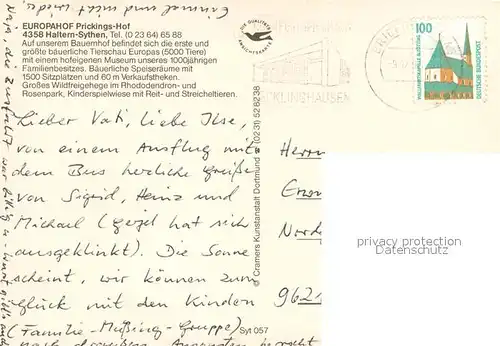 EUROPAHOF Prickings-Hof
4358 Haltern-Sythen, Tel. (0 23 64) 65 88
Auf unserem Bauernhof befindet sich die erste und
größte bäuerliche Tierschau Europas (5000 Tiere)
mit einem hofeigenen Museum unseres 1000jährigen
Familienbesitzes. Bäuerliche Speiseräume mit
1500 Sitzplätzen und 60 m Verkaufstheken.
Großes Wildfreigehege im Rhododendron- und
Rosenpark, Kinderspielwiese mit Reit- und Streicheltieren.
DIE QUALITÄTS
ANSICHTSKARTE
RECKLINGHAUSEN
100
DEUTSCHE BUNDESPOST
Lieber Vati, liebe Ilse,
von einem Ausflug mit
dem Bus herzliche Grüße
von Sigrid, Heinz und
Michael (Geigel hat sich
ausgeklinkt). Die Sonne
scheint, wir können zum
Glück mit den Kindern
(Familie-Müßing-Gruppe)
nach draußen
© Cramers Kunstanstalt Dortmund (02 31) 52 82 38
Syt 057
Herrn
Nord
962
privacy protection
Datenschutz